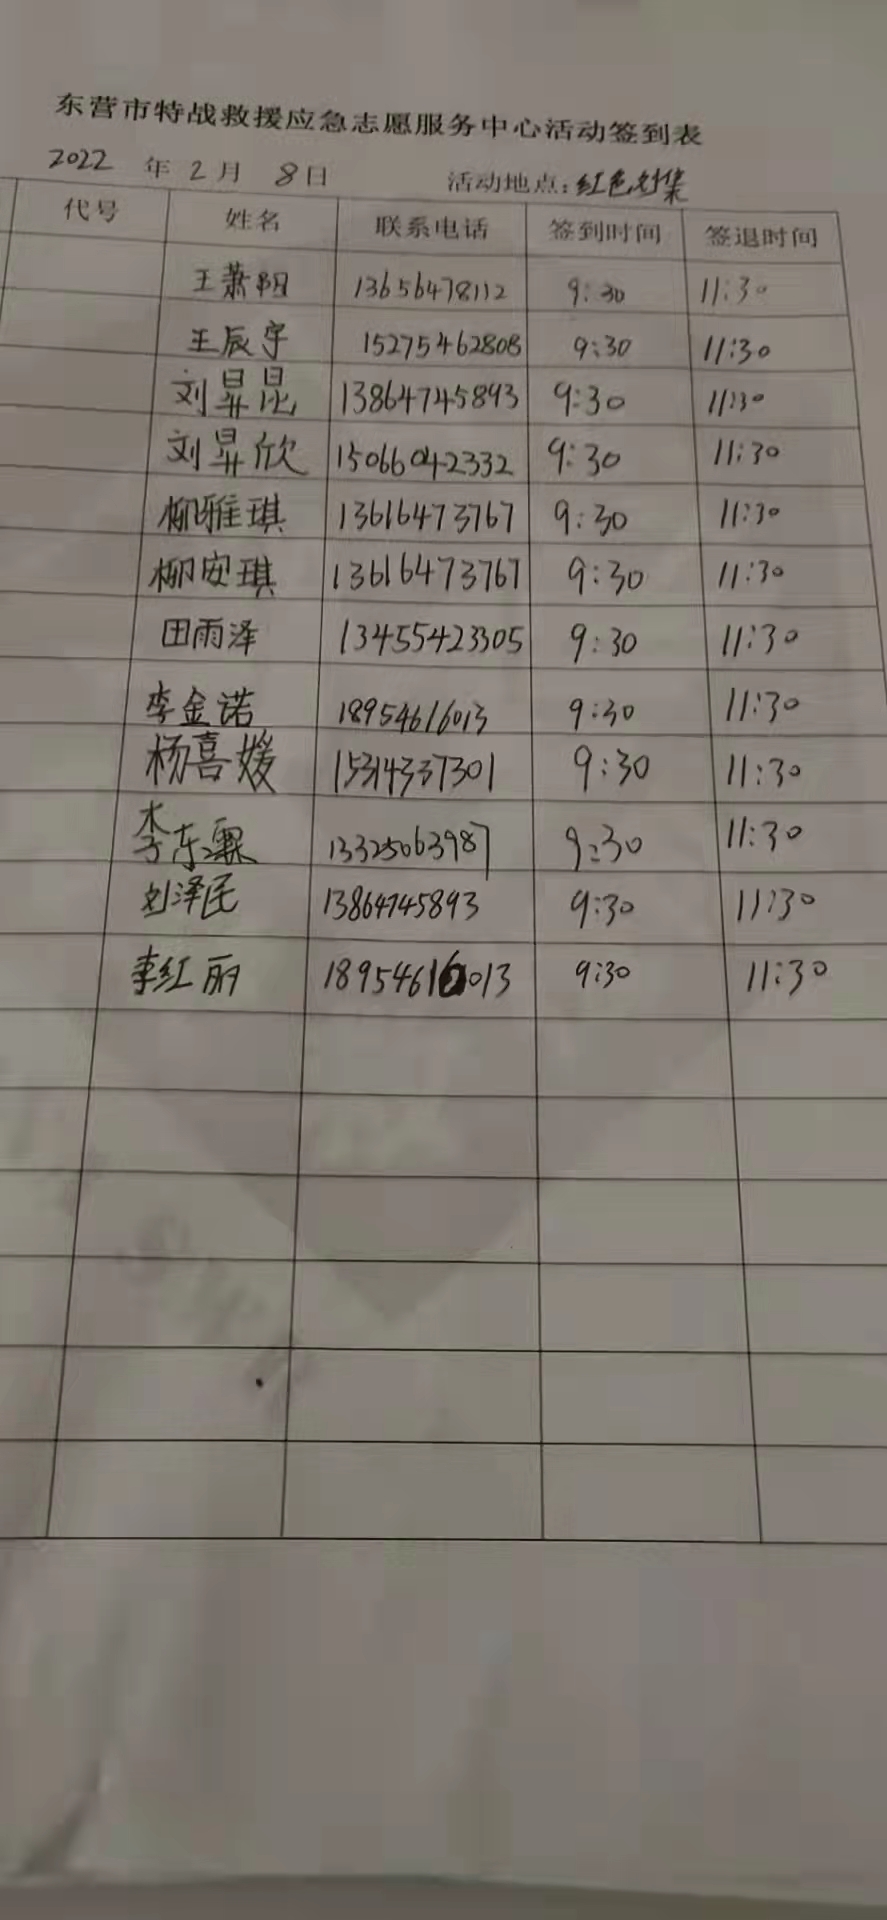 东营市特战救援应急志愿服务中心活动签到表
2022 年 2 月 8 日 活动地点：红色刘集
代号 姓名 联系电话 签到时间 签退时间
王萧阳 13656478112 9:30 11:30
王辰宇 15275462808 9:30 11:30
刘昇昆 13864745893 9:30 11:30
刘昇欣 15066042332 9:30 11:30
柳雅琪 13616473767 9:30 11:30
柳安琪 13616473767 9:30 11:30
田雨泽 13455423305 9:30 11:30
李金诺 18954616013 9:30 11:30
杨喜媛 15314337301 9:30 11:30
李东霖 13325063987 9:30 11:30
刘泽民 13864745893 9:30 11:30
李红丽 18954616013 9:30 11:30